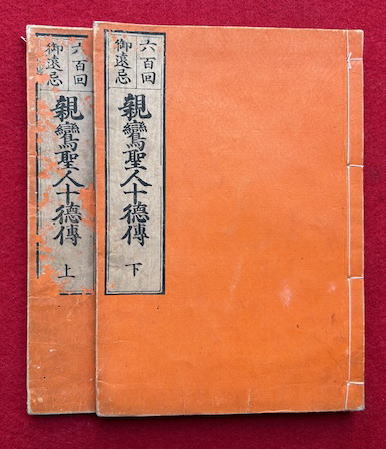 六百回
御遠忌
親鸞聖人十德傳
下
六百回
御遠忌
親鸞聖人十德傳
上